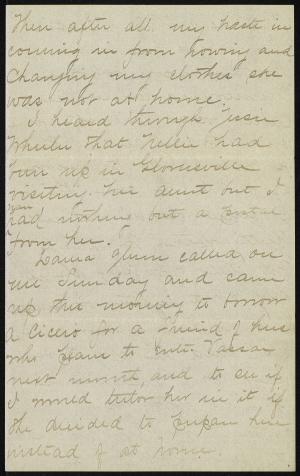 Then after all my haste in
coming in from rowing and
changing my clothes she
was not at home.
I heard through Jessie
Wheeler that Nellie had
been up in Gloversville
visiting her aunt but I
had nothing but a
from her.
Laura Glenn called on
me Sunday and came
up this morning to borrow
a Cicero for a friend of hers
who to enter Vassar
next and to see if
I would tutor her in it if
she decided to prepare here
instead of at home.